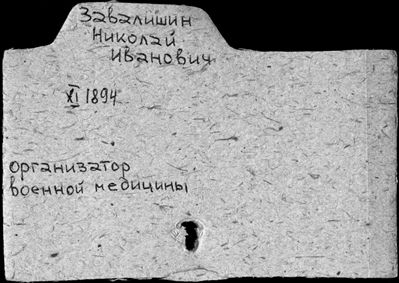 Завалишин
Николай
Иванович
XI 1894
Организатор
военной медицины